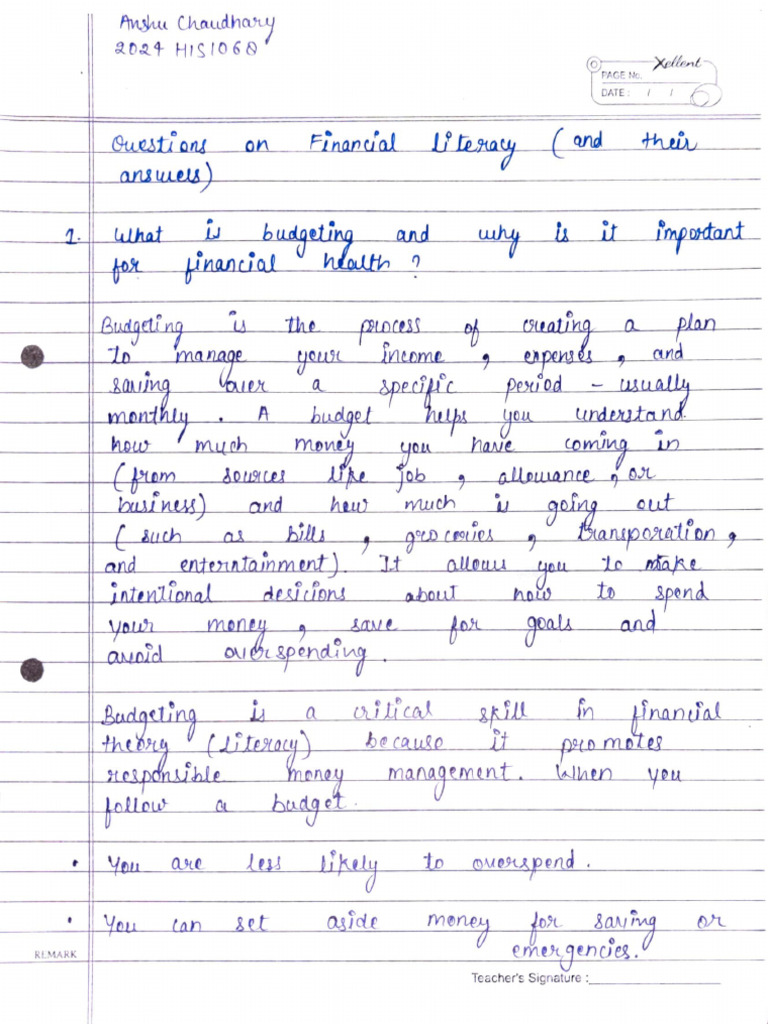 Anshu Chaudhary
2024 HIS1068
Xellent
PAGE No.
DATE: / /
Questions on Financial literacy (and their
answers)
1. What is budgeting and why is it important
for financial health?
Budgeting is the process of creating a plan
to manage your income, expenses, and
saving over a specific period - usually
monthly. A budget helps you understand
how much money you have coming in
(from sources like job, allowance, or
business) and how much is going out
(such as bills, groceries, transporation,
and enterntainment). It allows you to make
intentional desicions about how to spend
your money, save for goals and
avoid overspending.
Budgeting is a critical skill in financial
theory (literacy) because it promotes
responsible money management. When you
follow a budget.
• You are less likely to overspend.
• You can set aside money for saving or
emergencies.
REMARK
Teacher's Signature :